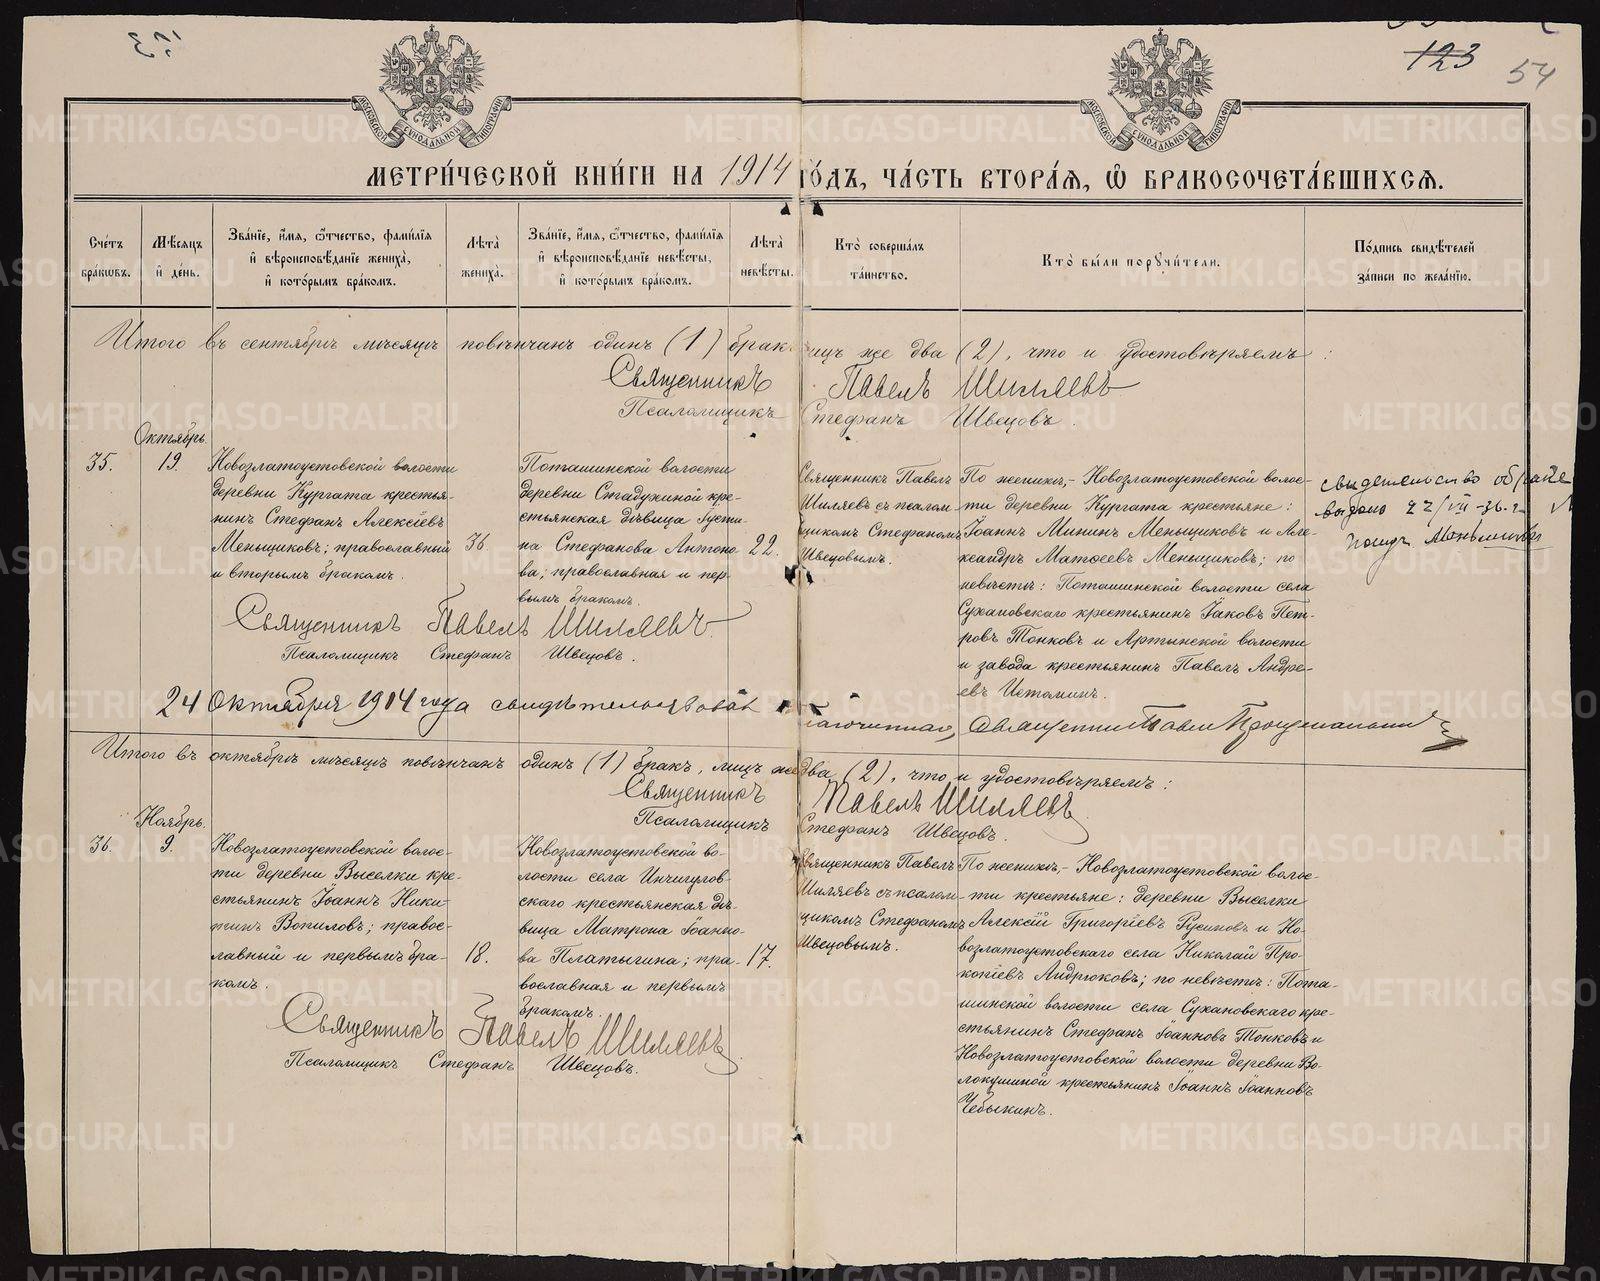 123
54
МОСКОВСКОЙ СѴНОДАЛЬНОЙ ТИПОГРАФИИ
МОСКОВСКОЙ СѴНОДАЛЬНОЙ ТИПОГРАФИИ
МЕТРИ́ЧЕСКОЙ КНИ́ГИ НА 1914 ГО́ДЪ, ЧА́СТЬ ВТОРА́Я, Ѽ БРАКОСОЧЕТА́ВШИХСЯ.
Сче́тъ
бра́кѡвъ.
Мѣ́сяцъ
и҆ де́нь.
Зва́нїе, и҆́мя, ѻ҆́тчество, фами́лїя
и҆ вѣроисповѣ́данїе жениха̀,
и҆ кото́рымъ бра́комъ.
Лѣта̀
жениха̀.
Зва́нїе, и҆́мя, ѻ҆́тчество, фами́лїя
и҆ вѣроисповѣ́данїе невѣ́сты,
и҆ кото́рымъ бра́комъ.
Лѣта̀
невѣ́сты.
Кто̀ соверша́лъ
та́инство.
Кто̀ бы́ли порꙋчи́тели.
По́дпись свидѣ́телей
за́писи по жела́нїю.
Итого въ сентябрѣ мѣсяцѣ повѣнчанъ одинъ (1) бракъ, лицъ же два (2), что и удостовѣряемъ:
Священникъ Павелъ Шиляевъ
Псаломщикъ Стефанъ Швецовъ.
35.
Октябрь.
19.
Новозлатоустовской волости
деревни Кургата крестья-
нинъ Стефанъ Алексѣевъ
Меньщиковъ; православный
и вторымъ бракомъ.
36.
Поташинской волости
деревни Стадухиной кре-
стьянская дѣвица Iусти-
на Стефанова Антоно-
ва; православная и пер-
вымъ бракомъ.
22.
Священникъ Павелъ
Шиляевъ съ псалом-
щикомъ Стефаномъ
Швецовымъ.
По женихѣ,- Новозлатоустовской волос-
ти деревни Кургата крестьяне:
Iоаннъ Мининъ Меньщиковъ и Але-
ксандръ Матѳеевъ Меньщиковъ; по
невѣстѣ: Поташинской волости села
Сухановскаго крестьянинъ Iаковъ Пет-
ровъ Тонковъ и Артынской волости
и завода крестьянинъ Павелъ Андре-
евъ Истоминъ.
свидетельство о браке
выдано 22/VII-36 г.
Священникъ Павелъ Шиляевъ.
Псаломщикъ Стефанъ Швецовъ.
24 Октября 1914 года свидѣтельствовалъ благочинный, священникъ Павелъ
Итого въ октябрѣ мѣсяцѣ повѣнчанъ одинъ (1) бракъ, лицъ же два (2), что и удостовѣряемъ:
Священникъ Павелъ Шиляевъ
Псаломщикъ Стефанъ Швецовъ.
36.
Ноябрь.
9.
Новозлатоустовской волос-
ти деревни Выселки кре-
стьянинъ Iоаннъ Ники-
тинъ Вопиловъ; правос-
лавный и первымъ бра-
комъ.
18.
Новозлатоустовской во-
лости села Инчигулов-
скаго крестьянская дѣ-
вица Матрона Iоанно-
ва Платыгина; пра-
вославная и первымъ
бракомъ.
17.
Священникъ Павелъ
Шиляевъ съ псалом-
щикомъ Стефаномъ
Швецовымъ.
По женихѣ,- Новозлатоустовской волос-
ти крестьяне: деревни Выселки
Алексѣй Григорiевъ Русиновъ и Но-
возлатоустовскаго села Николай Про-
копiевъ Андрюковъ; по невѣстѣ: Пота-
шинской волости села Сухановскаго кре-
стьянинъ Стефанъ Iоанновъ Тонковъ и
Новозлатоустовской волости деревни Во-
локушиной крестьянинъ Iоаннъ Iоанновъ
Чебыкинъ.
Священникъ Павелъ Шиляевъ
Псаломщикъ Стефанъ Швецовъ.
METRIKI.GASO-URAL.RU